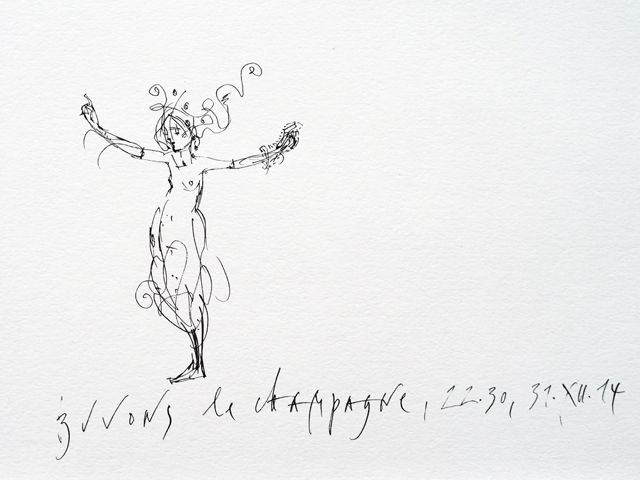 buvons le champagne, 22.30, 31.XII.14